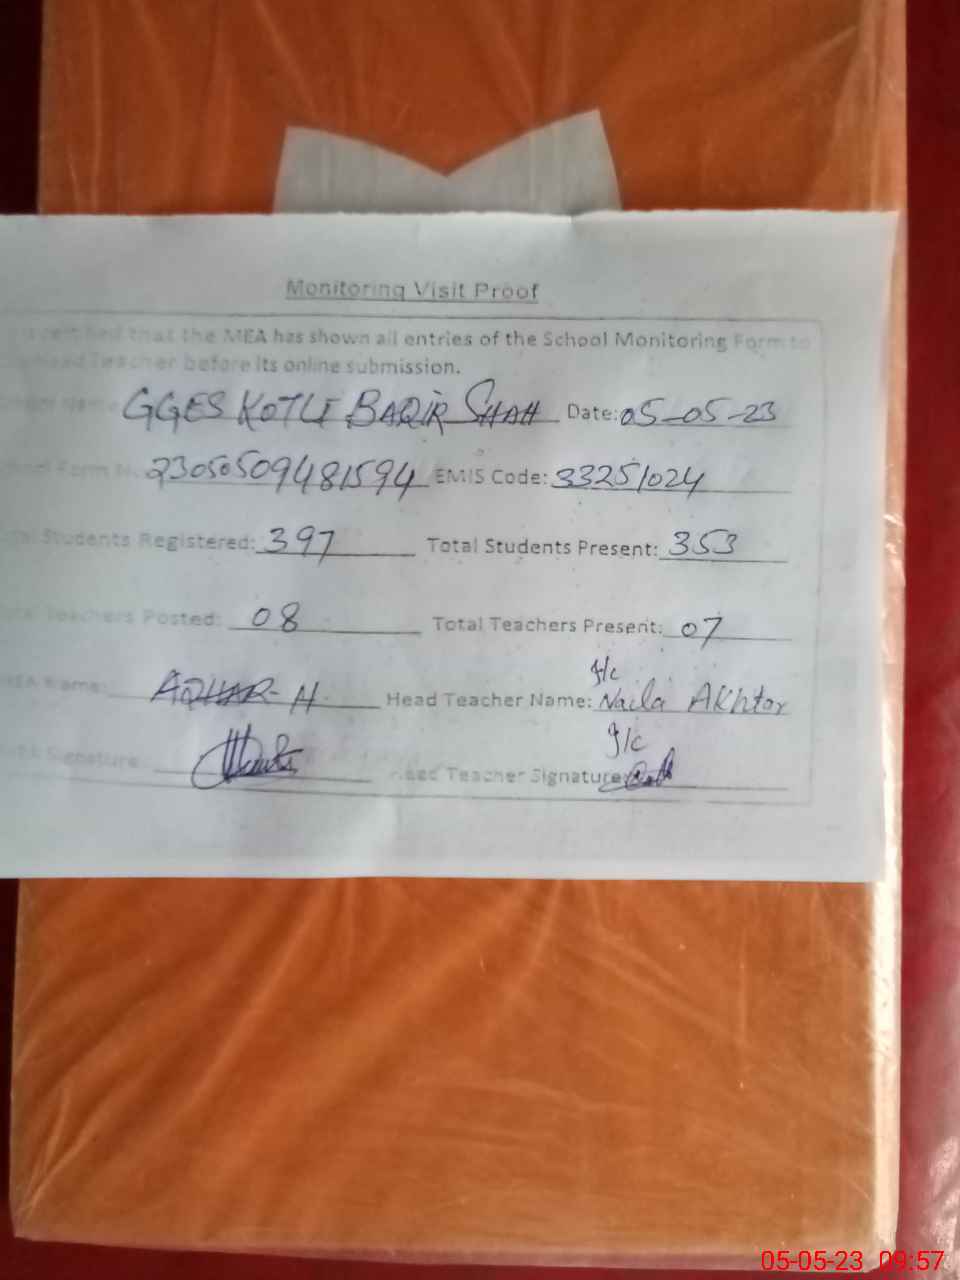 Monitoring Visit Proof
that the MEA has shown all entries of the School Monitoring Form to
Head Teacher before its online submission.
Name GGES KOTLI BAQIR SHAH Date: 05-05-23
School Form No. 23050509481594 EMIS Code: 33251024
Total Students Registered: 397 Total Students Present: 353
Total Teachers Posted: 08 Total Teachers Present: 07
I/c
MEA Name: AZHAR-H Head Teacher Name: Naila Akhtar
I/c
MEA Signature: Head Teacher Signature:
05-05-23 09:57